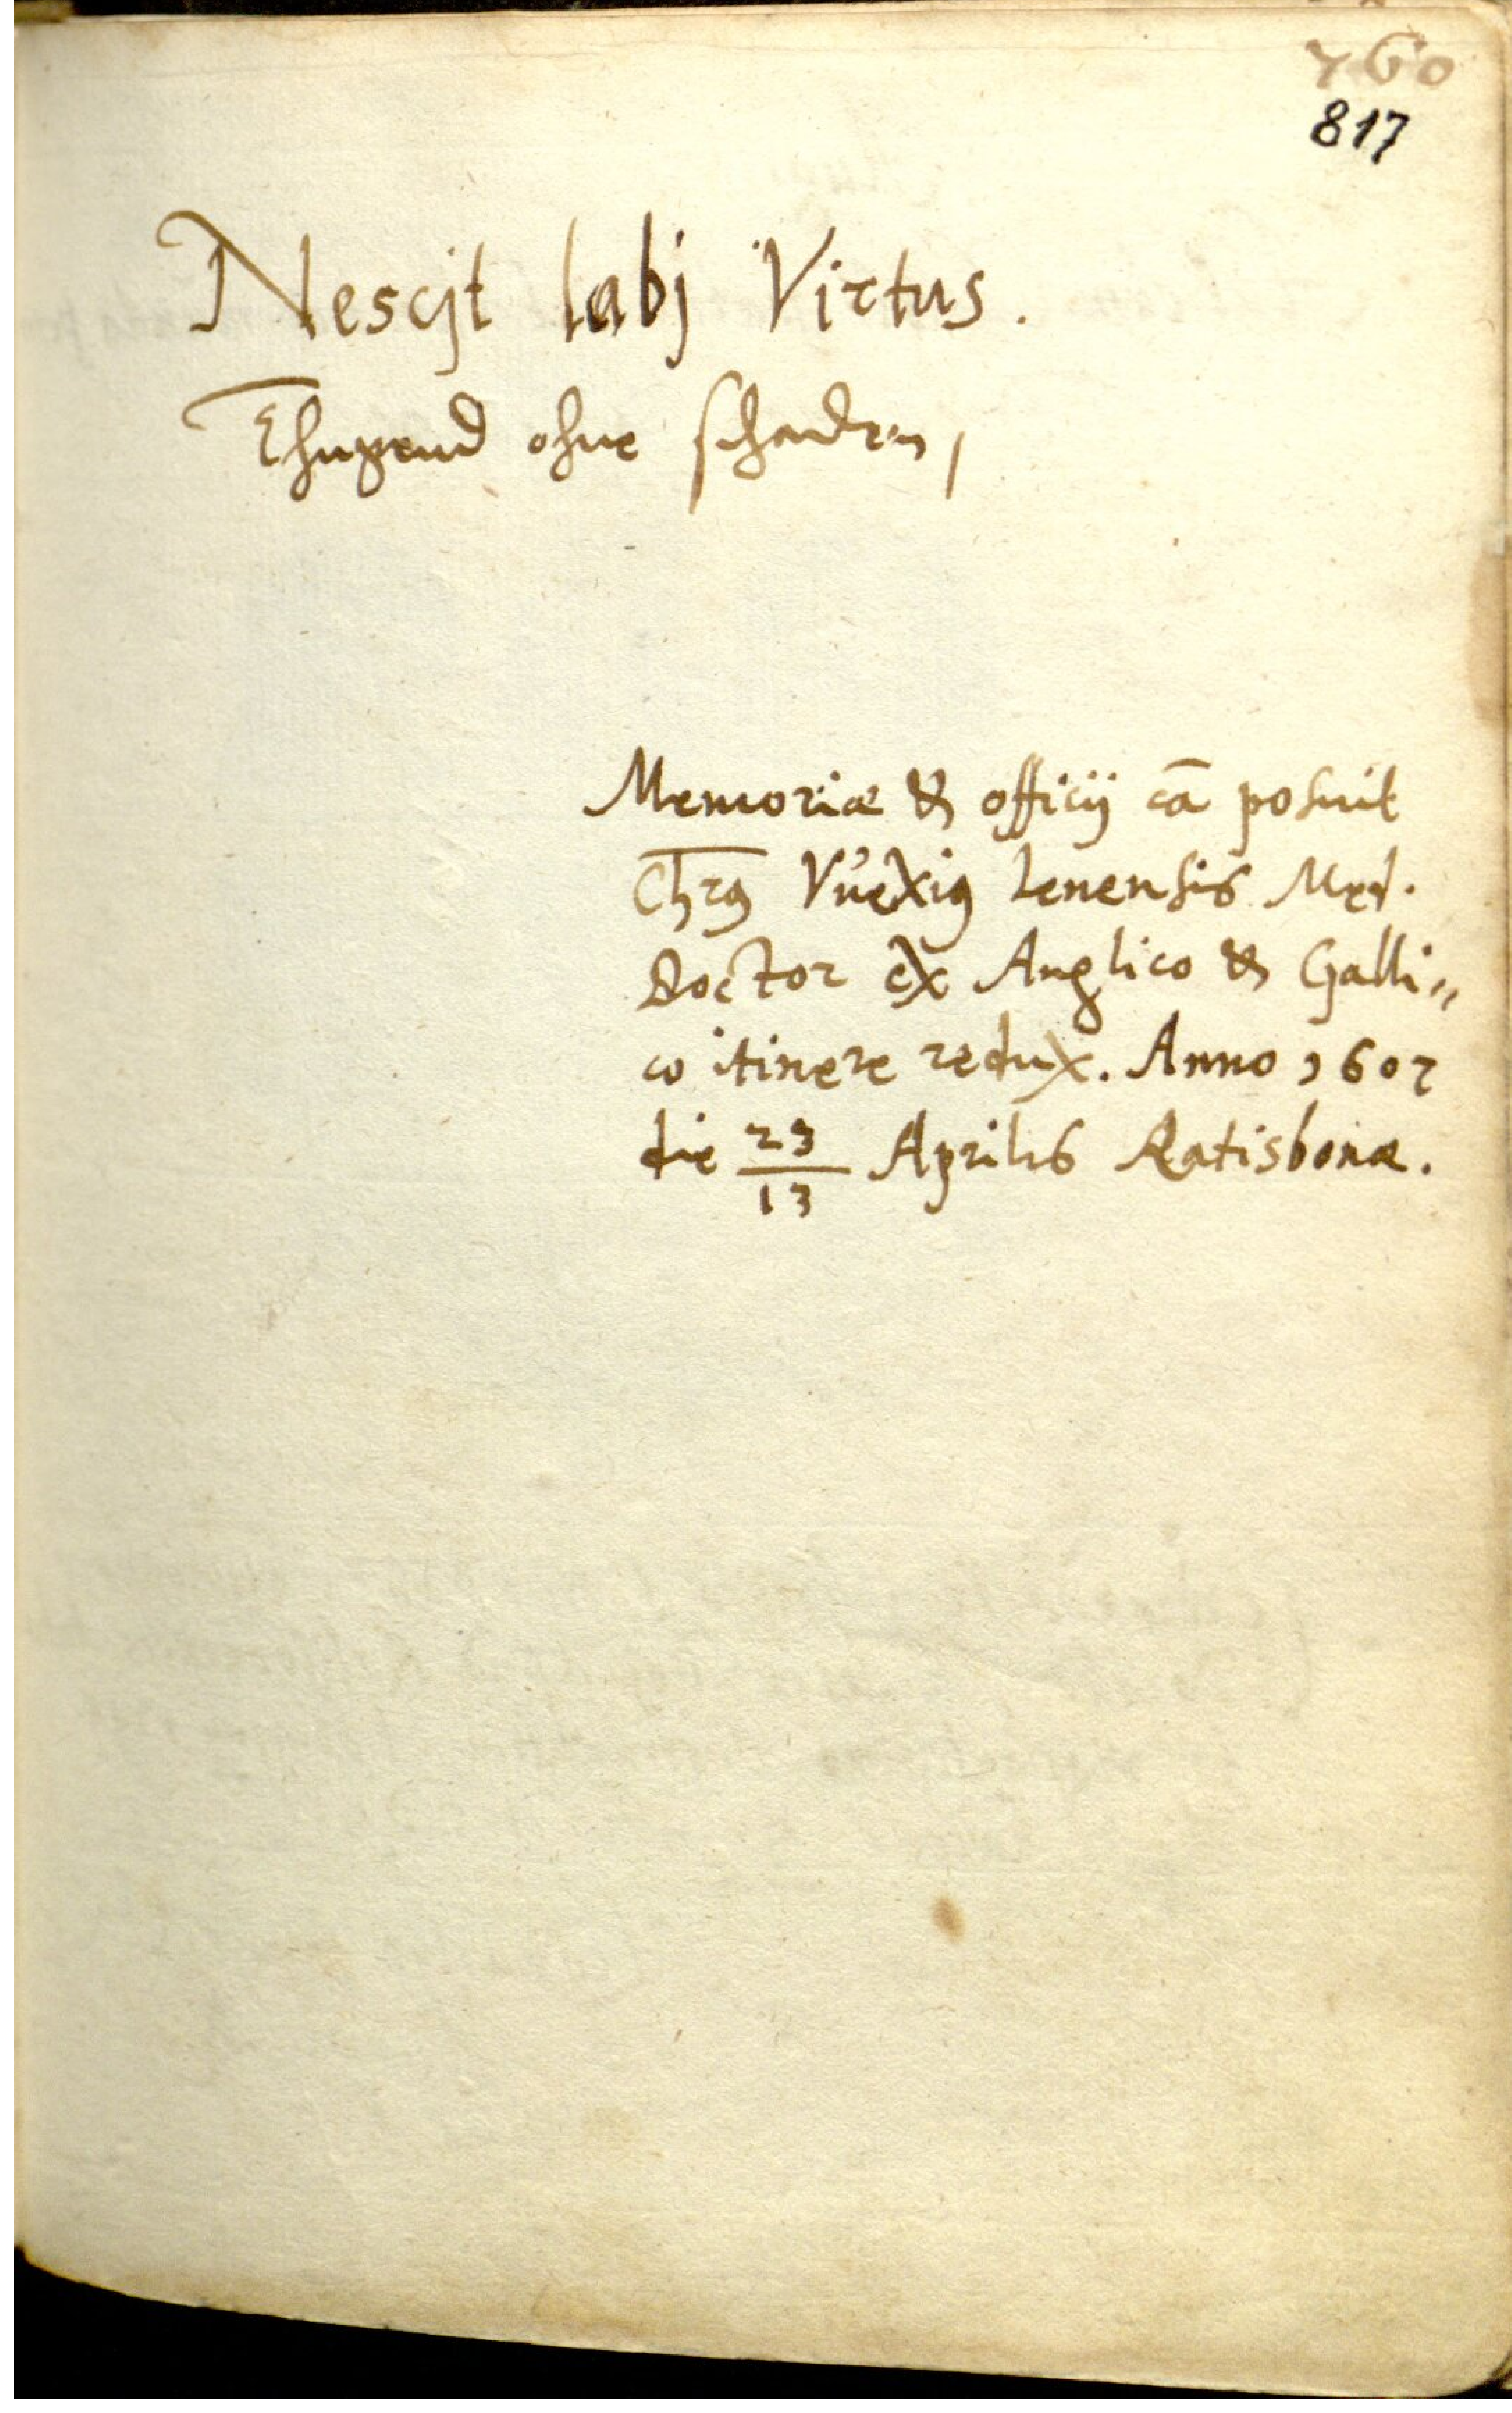 760
817
Nescjt labj Virtus.
Thugend ohne schaden,
Memoriæ & officij cā posuit
Chrꝰ Vuexiꝰ Lenensis Med.
Doctor ex Anglico & Galli„
co itinere redux. Anno 1607
die 23/13 Aprilis Ratisbonæ.